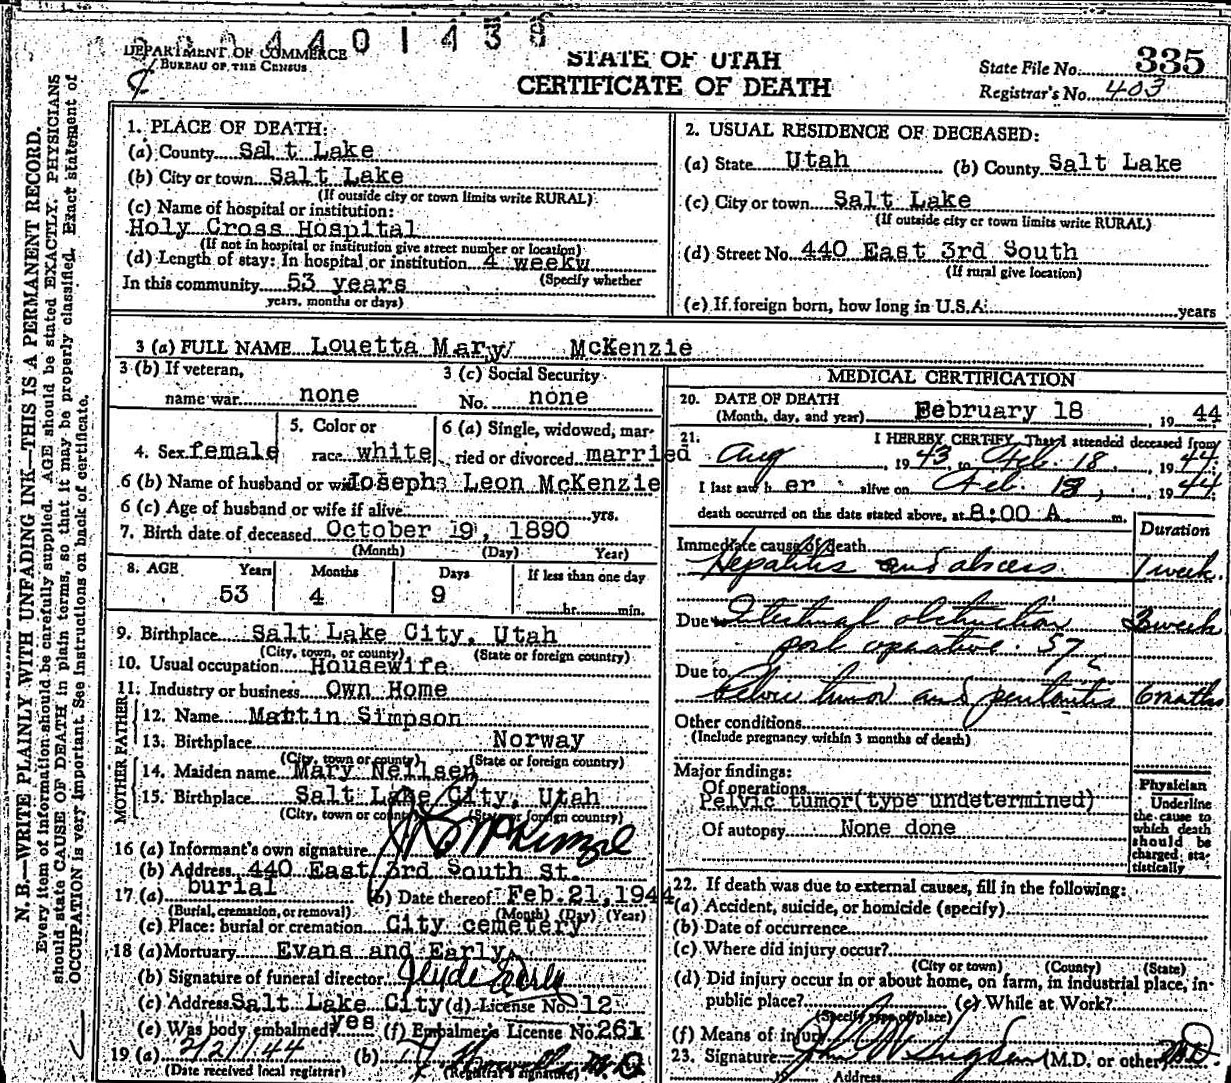 4 4 0 1 4 3 8
DEPARTMENT OF COMMERCE
BUREAU OF THE CENSUS
STATE OF UTAH
CERTIFICATE OF DEATH
State File No. 335
Registrar's No. 403
N. B.—WRITE PLAINLY WITH UNFADING INK—THIS IS A PERMANENT RECORD.
Every item of information should be carefully supplied. AGE should be stated EXACTLY. PHYSICIANS
should state CAUSE OF DEATH in plain terms, so that it may be properly classified. Exact statement of
OCCUPATION is very important. See instructions on back of certificate.
1. PLACE OF DEATH:
(a) County Salt Lake
(b) City or town Salt Lake
(If outside city or town limits write RURAL)
(c) Name of hospital or institution:
Holy Cross Hospital
(If not in hospital or institution give street number or location)
(d) Length of stay: In hospital or institution 4 weekw
(Specify whether
In this community 53 years
years, months or days)
2. USUAL RESIDENCE OF DECEASED:
(a) State Utah (b) County Salt Lake
(c) City or town Salt Lake
(If outside city or town limits write RURAL)
(d) Street No. 440 East 3rd South
(If rural give location)
(e) If foreign born, how long in U.S.A. years
3 (a) FULL NAME Louetta Mary McKenzie
3 (b) If veteran,
name war none
3 (c) Social Security
No. none
4. Sex female
5. Color or
race white
6 (a) Single, widowed, mar-
ried or divorced married
6 (b) Name of husband or wife Josephs Leon McKenzie
6 (c) Age of husband or wife if alive yrs.
7. Birth date of deceased October 19, 1890
(Month) (Day) Year)
8. AGE Years Months Days If less than one day
53 4 9 hr. min.
9. Birthplace Salt Lake City, Utah
(City, town, or county) (State or foreign country)
10. Usual occupation Housewife
11. Industry or business Own Home
FATHER
12. Name Mattin Simpson
13. Birthplace Norway
(City, town or county) (State or foreign country)
MOTHER
14. Maiden name Mary Neilsen
15. Birthplace Salt Lake City, Utah
(City, town or county) (State or foreign country)
16 (a) Informant's own signature McKenzie
(b) Address 440 East 3rd South St.
17 (a) burial (b) Date thereof Feb. 21, 1944
(Burial, cremation, or removal) (Month) (Day) (Year)
(c) Place: burial or cremation City cemetery
18 (a) Mortuary Evans and Early
(b) Signature of funeral director Clyde Early
(c) Address Salt Lake City (d) License No. 12
(e) Was body embalmed? yes (f) Embalmer's License No. 261
19 (a) 2/21/44 (b) M.D.
(Date received local registrar) (Registrar's signature)
MEDICAL CERTIFICATION
20. DATE OF DEATH
(Month, day, and year) February 18, 1944
21. I HEREBY CERTIFY, That I attended deceased from
Aug, 1943 to Feb. 18, 1944
I last saw her alive on Feb. 18, 1944
death occurred on the date stated above, at 8:00 A. m.
Duration
Immediate cause of death
Hepatitis and abscess 1 week
Due to Intestinal obstruction 3 week
post operative. 57
Due to
Pelvic tumor and peritonitis 6 months
Other conditions
(Include pregnancy within 3 months of death)
Major findings:
Of operations
Pelvic tumor(type undetermined)
Of autopsy None done
Physician
Underline
the cause to
which death
should be
charged sta-
tistically
22. If death was due to external causes, fill in the following:
(a) Accident, suicide, or homicide (specify)
(b) Date of occurrence
(c) Where did injury occur?
(City or town) (County) (State)
(d) Did injury occur in or about home, on farm, in industrial place, in
public place? (e) While at Work?
(Specify type of place)
(f) Means of injury
23. Signature (M.D. or other) MD
Address